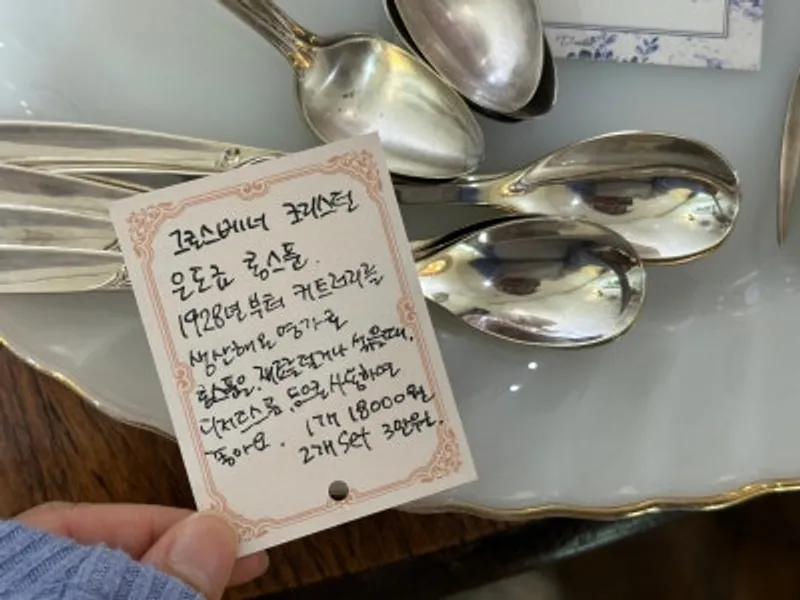 그로스베너 크리스탄
은도금 롱스푼.
1928년부터 커트러리를
생산해온 명가로
롱스푼은 잼을덜거나 섞을때,
디저트스푼 등으로 사용하면
좋아요. 1개 18000원
2개 set 3만원.